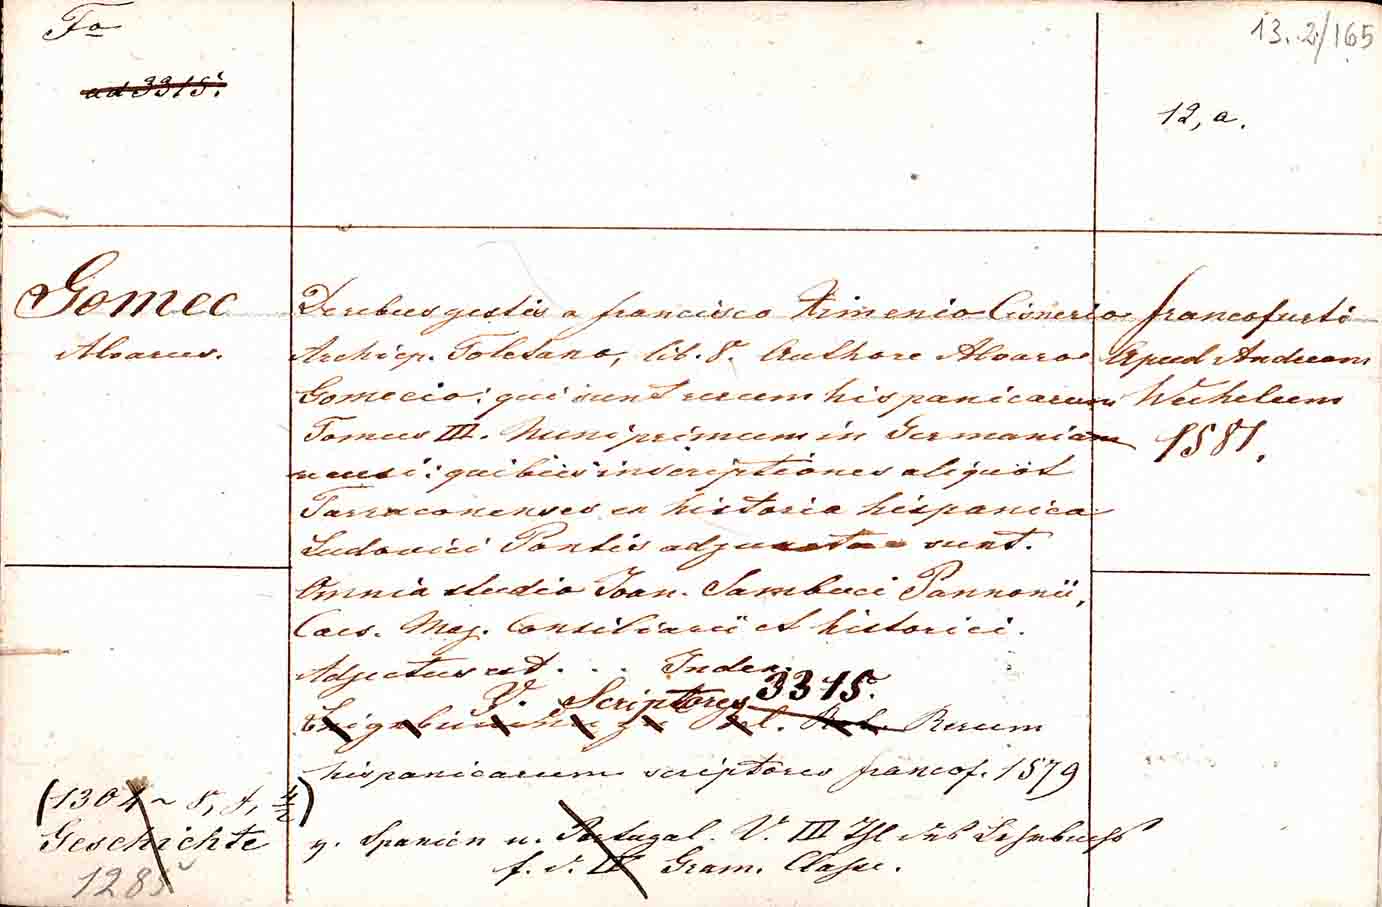 Fo
13. 2/165
ad 3315.
12, a.
Gomec
Alvarus.
De rebus gestis a francisco Ximenio Cisnerio
Archiep. Toletano, lib. 8. Authore Alvaros
Gomecio: qui sunt rerum hispanicarum
Tomus III. Nunc primum in Germaniam
: quibus inscriptiones aliquot
Tarraconenses ex historia hispanica
Ludovici Pontis adjunctae sunt.
Omnia studio Joan. Sambuci Pannonii,
Caes. Maj. Consiliarii et historici.
Adjectus est . . . Index.
francofurti
Apud Andream
Wechelum
1581.
V. Scriptores 3315.
Rerum
hispanicarum scriptores francof. 1579
Geschichte
1285
v. Spanien u. Portugal. V. III Thl des Lehrbuchs
f. d. IV Gram. Classe.